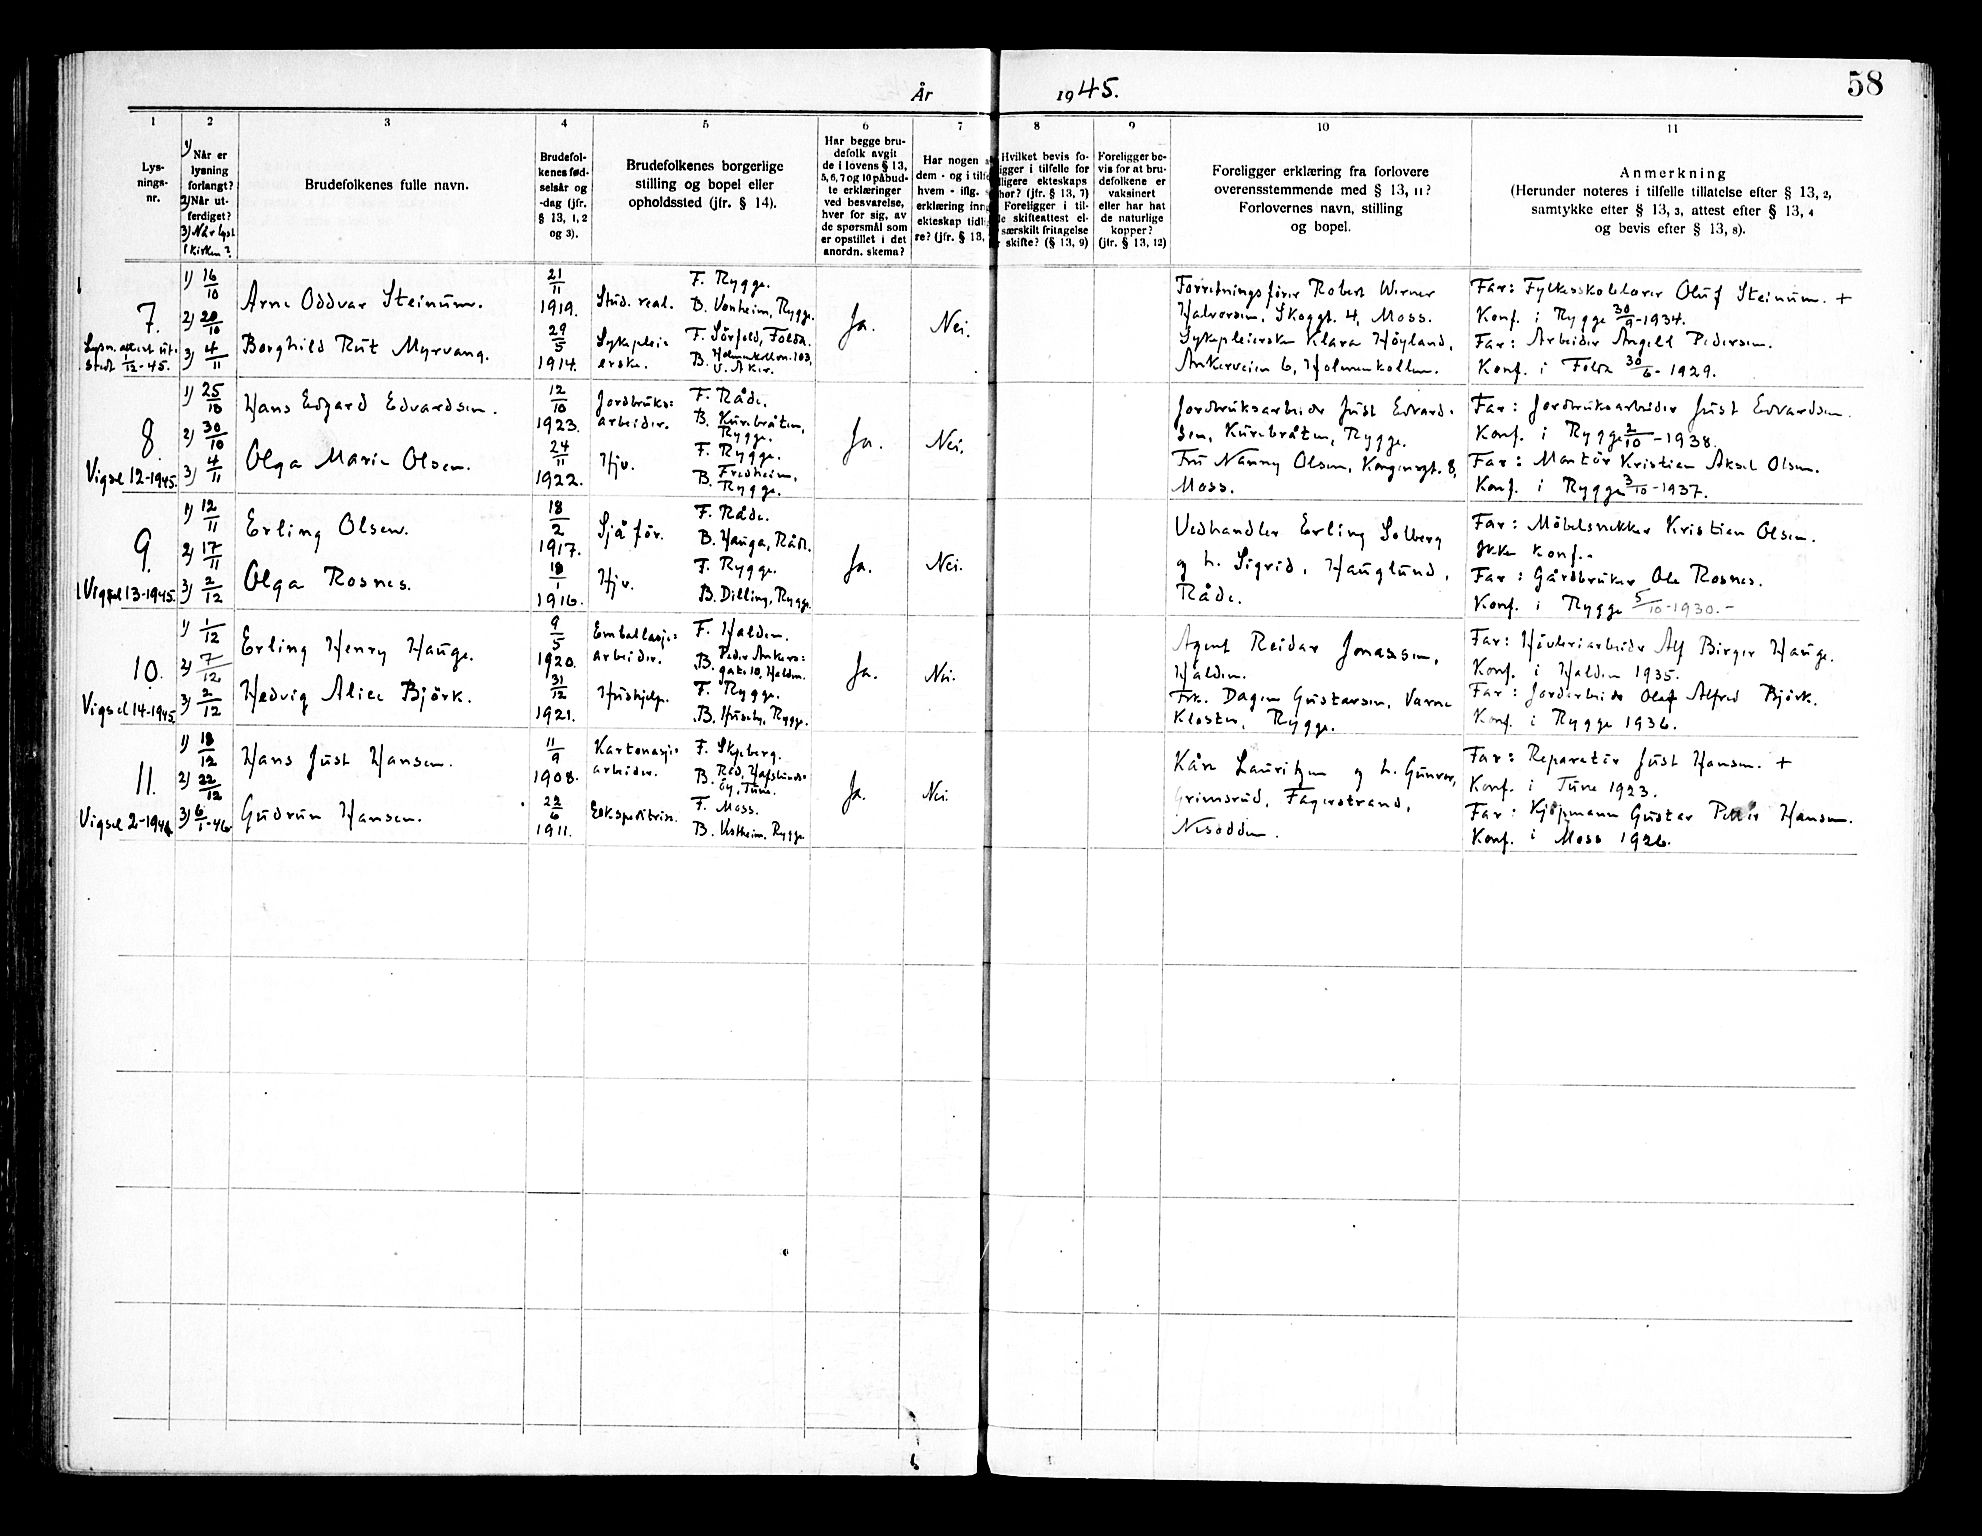 År 1945.
58
1 2 3 4 5 6 7 8 9 10 11
Lys-
nings-
nr.
1) Når er
lysning
forlangt?
2) Når ut-
ferdiget?
3) Når lyst
i kirken?
Brudefolkenes fulle navn.
Brudefol-
kenes fød-
selsår og
-dag (jfr.
§ 13, 1, 2
og 3).
Brudefolkenes borgerlige
stilling og bopel eller
opholdssted (jfr. § 14).
Har begge bru-
defolk avgit
de i lovens § 13,
5, 6, 7 og 10 påbud-
te erklæringer
ved besvarelse,
hver for sig, av
de spørsmål som
er opstillet i det
anordn. skema?
Har nogen
dem - og i tilf
hvem - iflg.
erklæring inng
ekteskap tidli
re? (jfr. § 13,
Hvilket bevis fo-
igger i tilfelle for
ligere ekteskaps
hør? (jfr. § 13, 7)
Foreligger i til-
le skifteattest el-
særskilt fritagelse
skifte? (§ 13, 9)
Foreligger be-
vis for at bru-
defolkene er
vaksinert
eller har hat
de naturlige
kopper?
(jfr. § 13, 12)
Foreligger erklæring fra forlovere
overensstemmende med § 13, 11?
Forlovernes navn, stilling
og bopel.
Anmerkning
(Herunder noteres i tilfelle tillatelse efter § 13, 2,
samtykke efter § 13, 3, attest efter § 13, 4
og bevis efter § 13, 8).
7.
Lysn. attest ut-
stedt 1/12-45.
1) 16/10
2) 20/10
3) 4/11
Arne Oddvar Steinum.
Borghild Rut Myrvang.
21/11
1919.
29/5
1914.
Stud. real.
F. Rygge.
B. Vonheim, Rygge.
Sykeplei-
erske.
F. Sörfold, Folda.
B. Holmenkollvn. 103,
V. Aker.
Ja.
Nei.
Forretningsfører Robert Werner
Halvorsen, Skoggt. 4, Moss.
Sykepleierske Klara Höyland,
Ankerveien 6, Holmenkollen.
Far: Fylkesskolelærer Oluf Steinum. +
Konf. i Rygge 30/9-1934.
Far: Arbeider Angell Pedersen.
Konf. i Folda 30/6-1929.
8.
Vigsel 12-1945.
1) 25/10
2) 30/10
3) 4/11
Hans Edgard Edvardsen.
Olga Marie Olsen.
12/10
1923.
24/11
1922.
Jordbruks-
arbeider.
F. Råde.
B. Kurebråten,
Rygge.
Hjv.
F. Rygge.
B. Fredheim,
Rygge.
Ja.
Nei.
Jordbruksarbeider Just Edvard-
sen, Kurebråten, Rygge.
Fru Nanny Olsen, Kongensgt. 8,
Moss.
Far: Jordbruksarbeider Just Edvardsen.
Konf. i Rygge 2/10-1938.
Far: Montör Kristian Aksel Olsen.
Konf. i Rygge 3/10-1937.
9.
Vigsel 13-1945.
1) 12/11
2) 17/11
3) 2/12
Erling Olsen.
Olga Rosnes.
18/2
1917.
18/1
1916.
Sjåför.
F. Råde.
B. Hauga, Råde.
Hjv.
F. Rygge.
B. Dilling, Rygge.
Ja.
Nei.
Vedhandler Erling Solberg
og h. Sigrid, Hauglund,
Råde.
Far: Möbelsnekker Kristian Olsen.
Ikke konf.-
Far: Gårdbruker Ole Rosnes.
Konf. i Rygge 5/10-1930.-
10.
Vigsel 14-1945.
1) 1/12
2) 7/12
3) 2/12
Erling Henry Hauge.
Hedvig Alice Björk.
9/5
1920.
31/12
1921.
Emballasje-
arbeider.
F. Halden.
B. Peder Ankers-
gate 10, Halden.
Hushjelp.
F. Rygge.
B. Huseby, Rygge.
Ja.
Nei.
Agent Reidar Jonassen,
Halden.
Frk. Dagen Gustavsen, Varne
Kloster, Rygge.
Far: Höuleriarbeider Alf Birger Hauge.
Konf. i Halden 1935.
Far: Jordarbeider Olaf Alfred Björk.
Konf. i Rygge 1936.
11.
Vigsel 2-1946
1) 18/12
2) 22/12
3) 6/1-46
Hans Just Hansen.
Gudrun Hansen.
11/9
1908.
22/6
1911.
Kartonasje-
arbeider.
F. Skjeberg.
B. Råd, Hafslunds-
öy, Tune.
Ekspeditrise.
F. Moss.
B. Vestheim, Rygge
Ja.
Nei.
Kåre Lauritzen og h. Gunvor,
Grimsrud, Fagerstrand,
Nesodden.
Far: Reparatör Just Hansen. +
Konf. i Tune 1923.
Far: Kjöpmann Gustav Peder Hansen.
Konf. i Moss 1926.